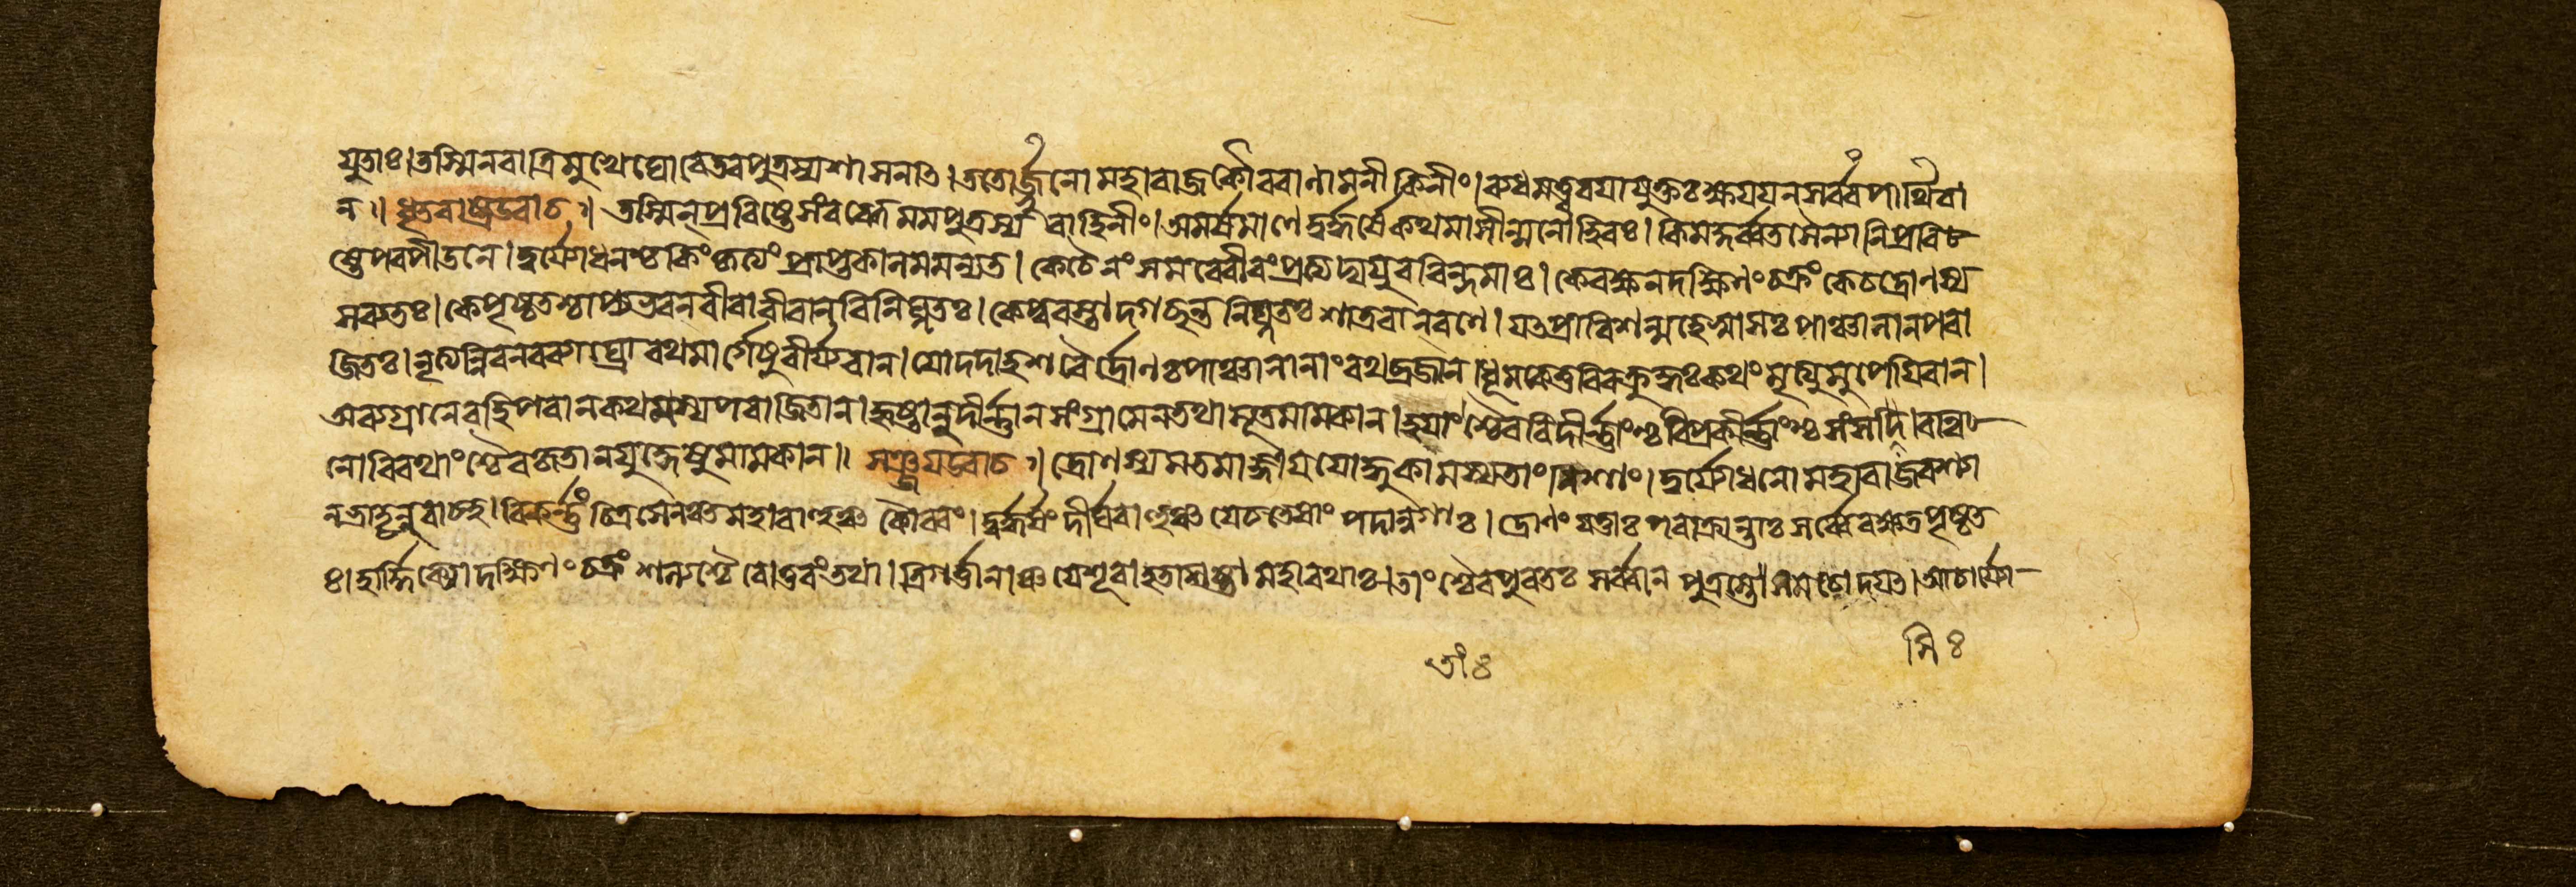 যুতাঃ।তস্মিনবাত্রিমুখেঘোবেতবপুত্রস্যশাসনাত।ততোর্জুনোমহাবাজকৌববাণামনীকিনীং।বাধমত্ত্ববযাযুক্তঃক্ষযযনসর্ব্বপার্থিবা
ন॥ধৃতবাষ্ট্রউবাচ॥তস্মিনপ্রবিষ্টেসংবব্ধেমমপুত্রস্যবাহিনীং।অমর্ষমাণেদুর্দ্ধর্ষেকথমাসীন্মনোহিবঃ।কিমহ্নর্ব্বতসৈন্যানিপ্রবি
ষ্টেপবপীডনে।দুর্যোধনশ্চকিংকৃত্যংপ্রাপ্তকালমমন্যত।কেচৈনংসমবেবীবংপ্রত্যুদ্যযুববিন্দমাঃ।কেবক্ষনদক্ষিণংচক্রংকেচদ্রোণস্য
সব্যতঃ।কেপৃষ্ঠতশ্চাপ্যভবনবীবাবীবানবিনিঘ্নতঃ।কেপ্ববস্তাদগছন্তনিঘ্নতঃশাত্রবানবণে।যতপ্রাবিশন্মহেষ্বাসঃপাঞ্চালানপবা
জিতঃ।নৃত্যন্নিবনবব্যাঘ্রোবথমার্গেষুবীর্যবান।যোদদাহশবৈর্দ্রোণঃপাঞ্চালানাংবথব্রজান।ধূমকেতুবিবক্রুদ্ধঃকথংমৃত্যুমুপেযিবান।
অব্যগ্রানেবহিপবানকথযস্যপবাজিতান।হৃষ্টানুদীর্ণ্ণানসংগ্রামেনতথাসূতমামকান।হতাংশ্চৈববিদীর্ণ্ণাংশ্চবিপ্রকীর্ণ্ণাংশ্চসংসদি।বথি
নোবিবথাংশ্চৈবকৃতানযুদ্ধেষুমামকান॥সঞ্জযউবাচ॥দ্রোণস্যমতমাজ্ঞাযযোদ্ধুকামস্যতাংনিশাং।দুর্যোধনোমহাবাজবশ্যা
নভ্রাতৃনুবাচহ।বিকর্ণ্ণংচিত্রসেনঞ্চমহাবাহুঞ্চকৌববং।দুর্দ্ধর্ষংদীর্ঘবাহুঞ্চযেচতেষাংপদানুগাঃ।দ্রোণংযত্তাঃপবাক্রান্তাঃসর্ব্বেবক্ষতপৃষ্ঠত
ঃ।হার্দ্দিক্যোদক্ষিণংচক্রংশল্যশ্চৈবোত্তবংতথা।ত্রিগর্ত্তানাঞ্চযেশূবাহতশিষ্টামহাবথাঃ।তাংশ্চৈবপুবতঃসর্ব্বানপুত্রস্তেসমচোদযত।আচার্যো
তাং৪ স্মি ৪